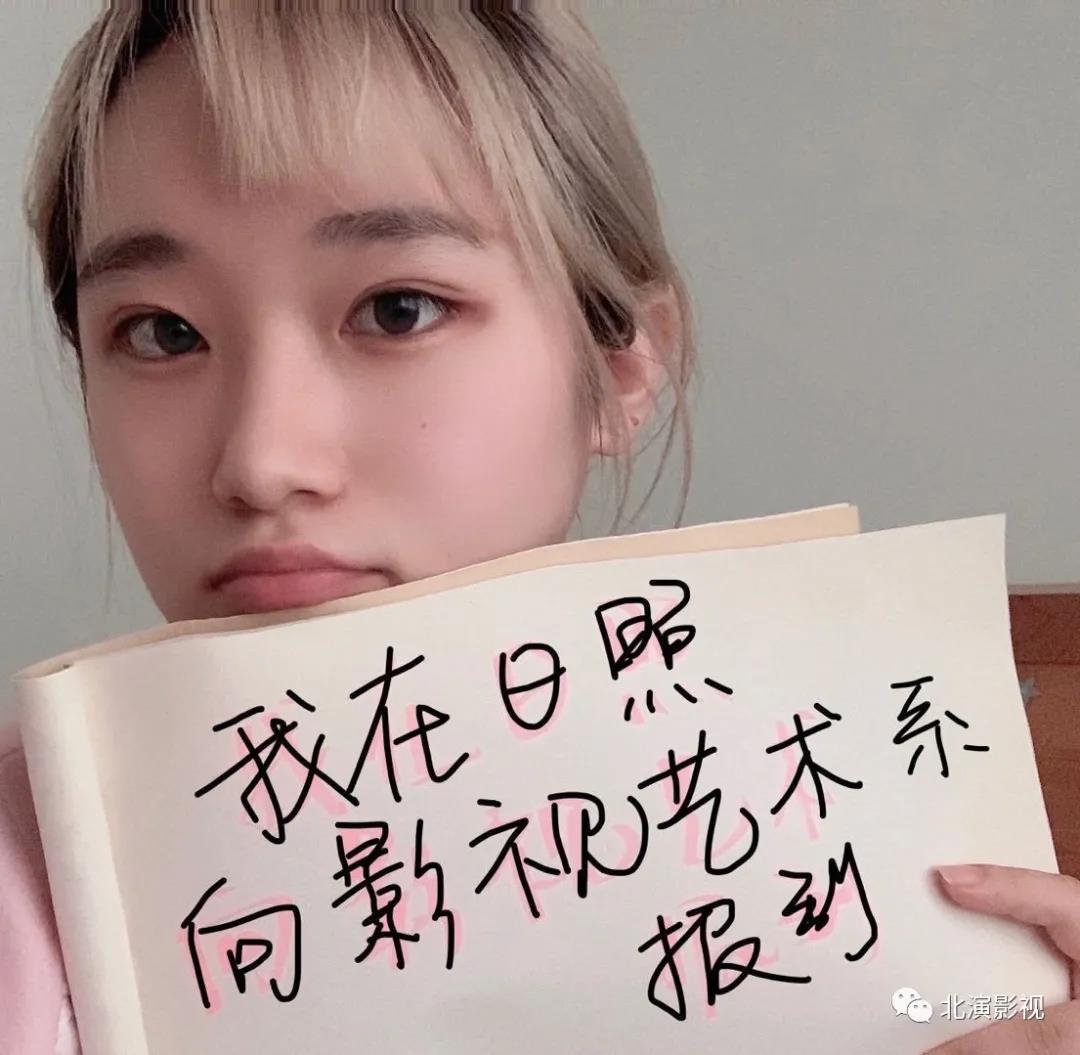 我在日照
向影视艺术系
报到
北演影视